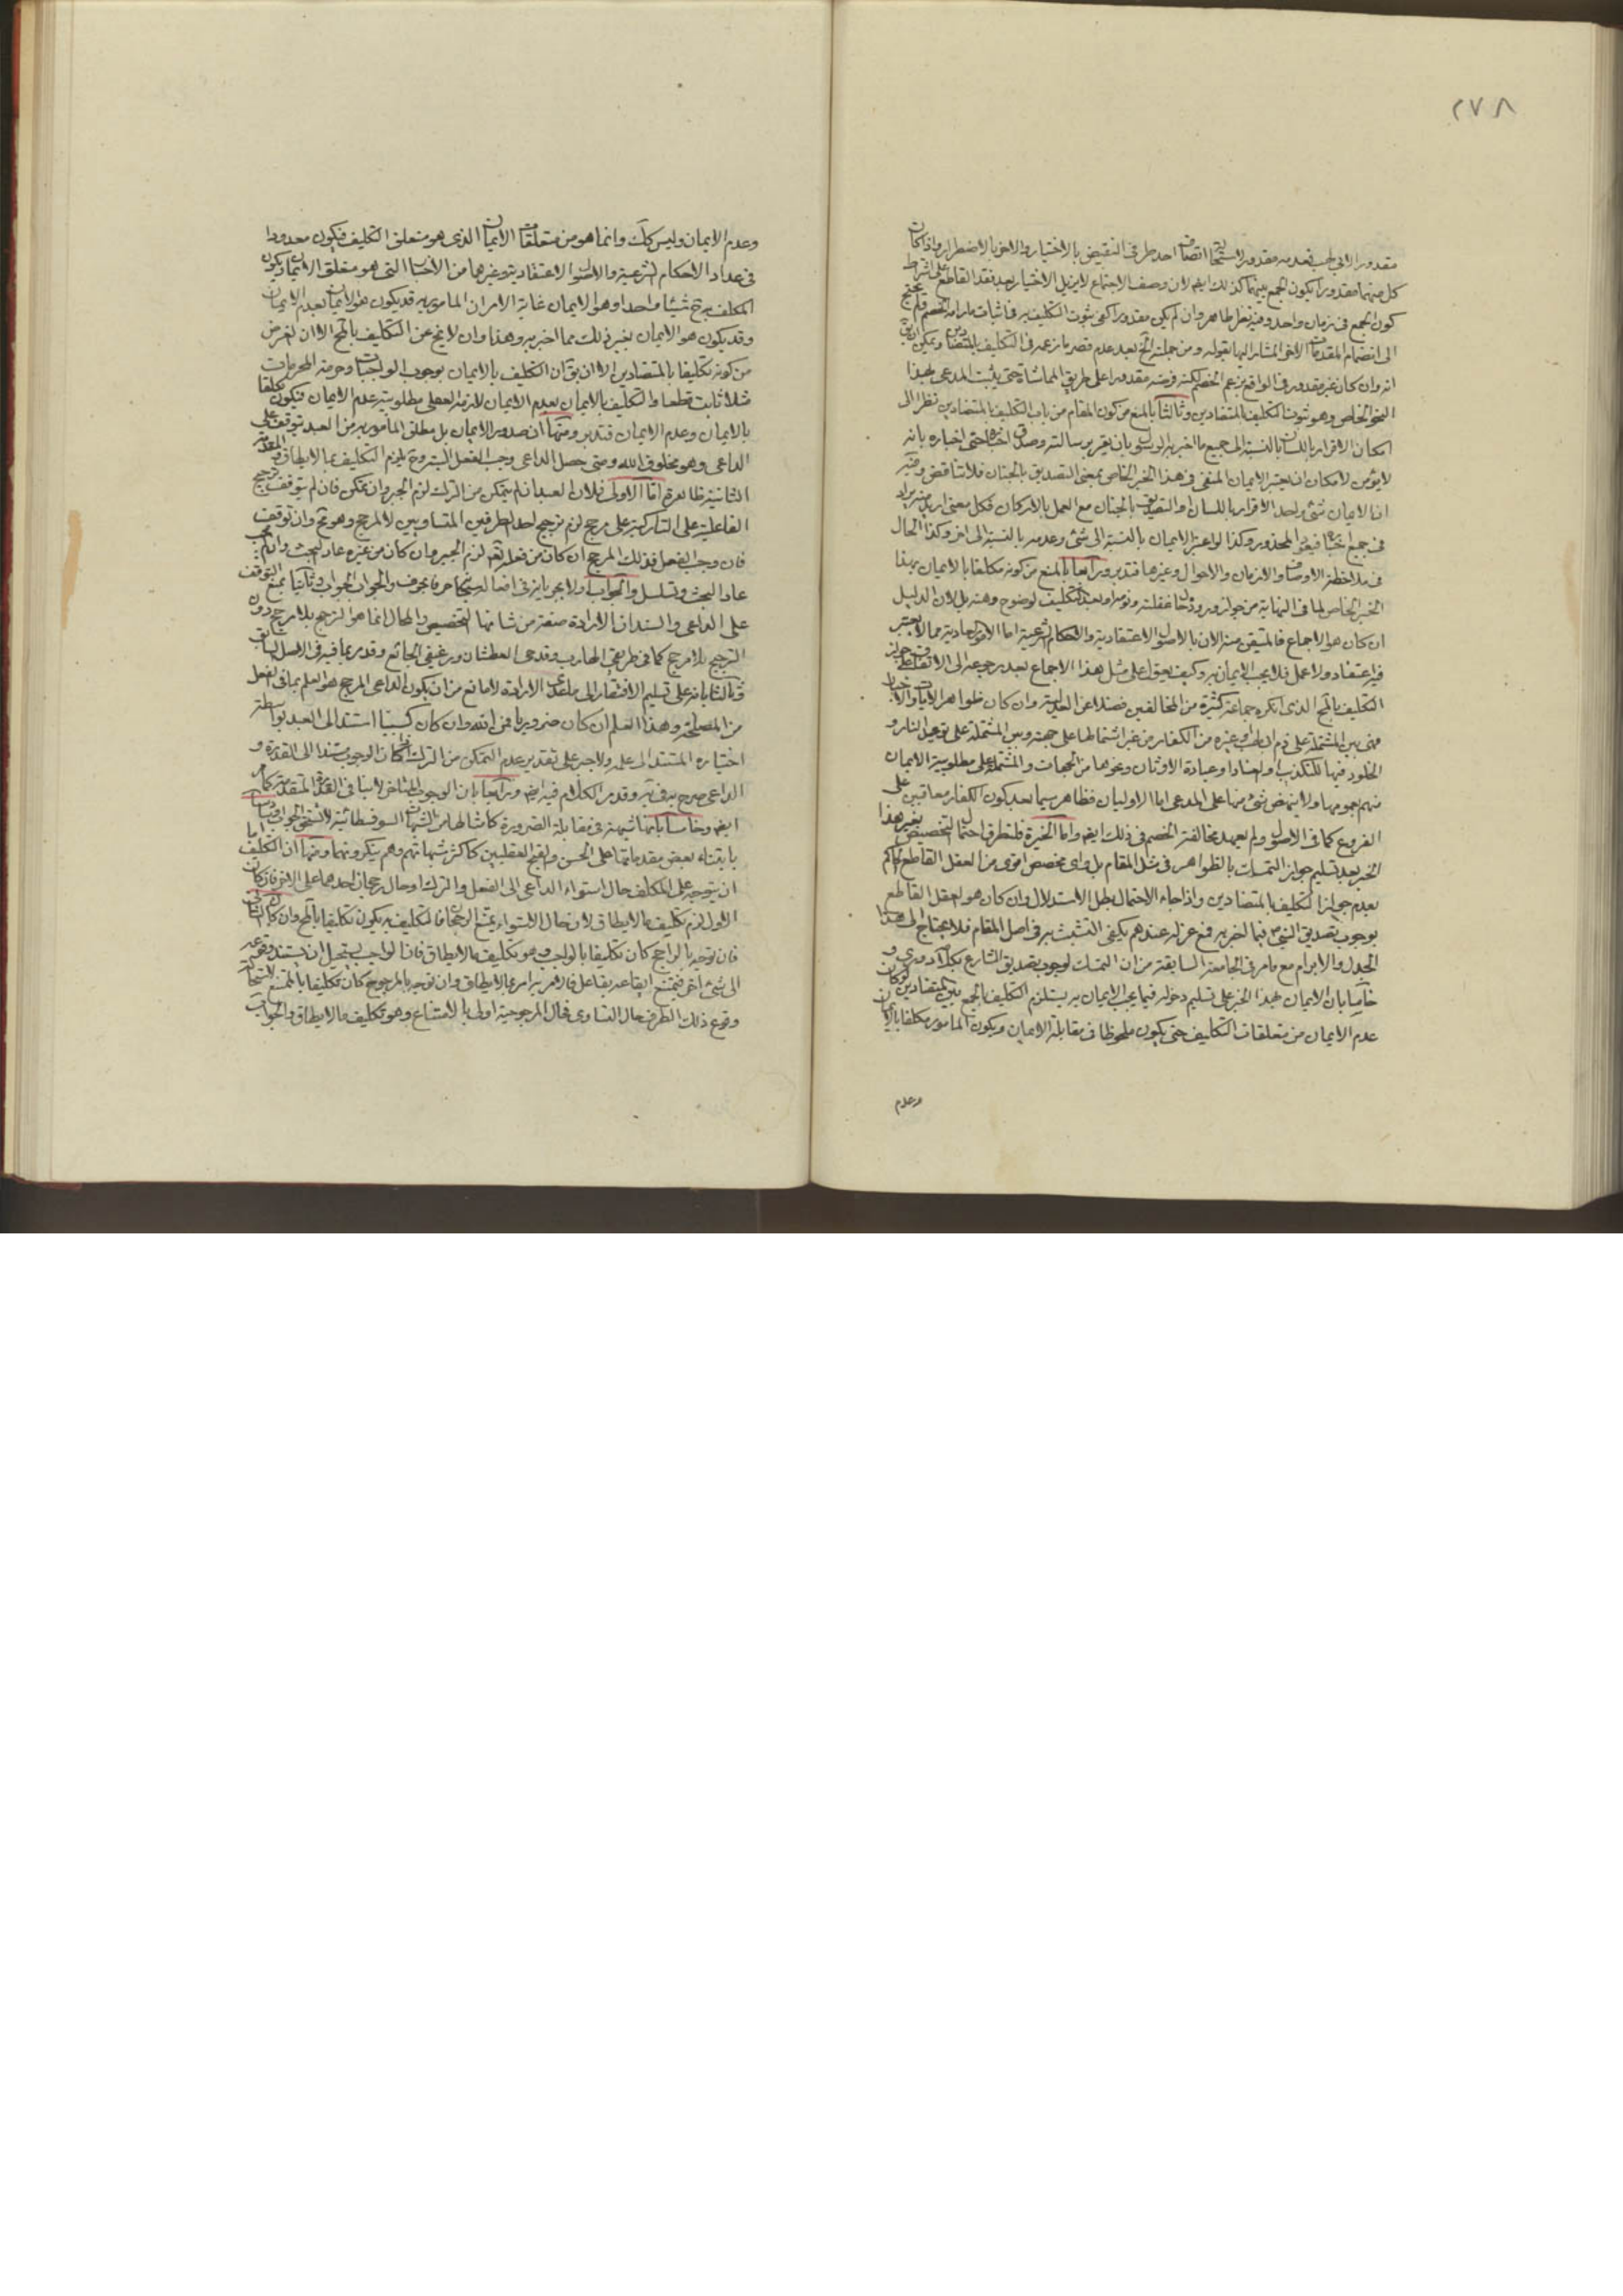 ٢٧٨
مقدورا لابى لهب فعدمه مقدور لاستحا اتصاف احد طرفى النقيض بالاختيار والاخر بالاضطرار واذا كان
كل منهما مقدورا يكون الجمع بينهما كذلك ايضا لان وصف الاجتماع لا يزيل الاختيار بعد فقد القاطع على اشتراط
كون الجمع فى زمان واحد وفيه نظر ظاهر وان لم يكن مقدورا كفى ثبوت التكليف به فى اثبات مارامه الخصم فلم يحتج
الى انضمام المقدمات الاخر المشار اليها بقوله ومن جملته الخ بعد عدم قصر ما زعمه فى التكليف بالمتضادين ويمكن ان يق
انه وان كان غير مقدور فى الواقع بزعم الخصم لكنه فرضه مقدورا على طريق المماشاة حتى يثبت المدعى بهذا
النحو الخاص وهو ثبوت التكليف بالمتضادين وثالثا بالمنع من كون المقام من باب التكليف بالمتضادين نظرا الى
امكان الاقرار باللسان بالنسبة الى جميع ما اخبر به الرسول بان يقر برسالته وصدق اخباره حتى اخباره بانه
لا يؤمن لامكان ان يعتبر الايمان المنفى فى هذا الخبر الخاص بمعنى التصديق بالجنان فلا تناقض وفيه
ان الايمان شئ واحد الاقرار باللسان او التصديق بالجنان مع العمل بالاركان فكل معنى اريد منه يراد
فى جميع اخباره فيعود المحذور وكذا لو اعتبر الايمان بالنسبة الى شئ وعدمه بالنسبة الى اخر وكذا الحال
فى ملاحظة الاوصاف والازمان والاحوال وغيرها فتدبر ورابعا بالمنع من كونه مكلفا بالايمان بهذا
الخبر الخاص لما فى النهاية من جواز وروده حال غفلته ونومه او بعد التكليف لوضوح وهنه بل لان الدليل
ان كان هو الاجماع فالمتيقن منه الايمان بالاصول الاعتقادية والاحكام الشرعية اما الامور العادية مما لا يعتبر
فيه اعتقاد ولا عمل فلا يجب الايمان به وكيف يعول على مثل هذا الاجماع بعد رجوعه الى الاتفاق على جواز
التكليف بالمحال الذى انكره جماعة كثيرة من المخالفين فضلا عن العدلية وان كان ظواهر الايات والاخبار
فهى بين المشتملة على ذم ابى لهب او غيره من الكفار من غير اشتمالها على جهته وبين المشتملة على توعيد النار و
الخلود فيها للتكذيب او العناد او عبادة الاوثان ونحوها من الجهات والمشتملة على مطلوبية الايمان
منهم بعمومها ولا ينهض شئ منها على المدعى اما الاوليان فظاهر سيما بعد كون الكفار معاقبين على
الفروع كما فى الاصول ولم يعهد مخالفة الخصم فى ذلك ايضا واما الاخيرة فلتطرق احتمال التخصيص بغير هذا
الخبر بعد تسليم جواز التمسك بالظواهر فى مثل المقام بل واى مخصص اقوى من العقل القاطع الحاكم
بعدم جواز التكليف بالمتضادين واذا جاء الاحتمال بطل الاستدلال وان كان هو العقل القاطع
بوجوب تصديق النبى ص فيما اخبر به فمع عزله عندهم يكفى التشبث به فى اصل المقام فلا يحتاج الى هذا
الجدل والابرام مع ما مر فى الجامعة السابقة من ان التمسك لوجوب تصديق الشارع بكلامه دورى و
خامسا بان الايمان بهذا الخبر على تسليم دخوله فيما يجب الايمان به يستلزم التكليف بالجمع بين المتضادين لو كان
عدم الايمان من متعلقات التكليف حتى يكون ملحوظا فى مقابلة الايمان ويكون المامور مكلفا بالايمان
وعدم
وعدم الايمان وليس كك وانما هو من متعلقات الايمان الذى هو متعلق التكليف فيكون معدودا
فى عداد الاحكام الشرعية والاصول الاعتقادية وغيرها من الاخبار التى هو متعلق الايمان فيكون
المكلف به ح شيئا واحدا وهو الايمان غاية الامر ان المامور به قد يكون هو الايمان بعدم الايمان
وقد يكون هو الايمان بغير ذلك مما اخبر به وهذا وان لا ينج عن التكليف بالمحال الا ان الغرض
من كونه تكليفا بالمتضادين الا ان يق ان التكليف بالايمان بوجوب الواجبات وحرمة المحرمات
مثلا ثابت قطعا والتكليف بالايمان بعدم الايمان لازمه العقلى مطلوبية عدم الايمان فيكون مكلفا
بالايمان وعدم الايمان فتدبر ومنها ان صدور الايمان بل مطلق المأمور به من العبد يتوقف على
الداعى وهو مخلوق الله ومتى حصل الداعى وجب الفعل البتة وح يلزم التكليف بما لا يطاق والمقدمة
الثانية ظاهرة اما الاولى فلان العبد ان لم يتمكن من الترك لزم الجبر وان تمكن فان لم يتوقف ترجيح
الفاعلية على التاركية على مرجح لزم ترجيح احد الطرفين المتساويين لا لمرجح وهو مح وان توقف
فان وجب الفعل فذلك المرجح ان كان من فعله تعالى لزم الجبر وان كان من غيره عاد البحث وان لم يجب
عاد البحث وتسلسل والجواب اولا بجريانه فى افعاله سبحانه حرفا بحرف والجواب الجواب وثانيا بمنع التوقف
على الداعى والسند ان الارادة صفة من شانها التخصيص والمحال انما هو الترجح بلا مرجح دون
الترجيح بلا مرجح كما فى طريقى الهارب وقدحى العطشان ورغيفى الجائع وقد مر ما فيه فى الاصل السابق
وثالثا بانه على تسليم الافتقار الى ما عدا الارادة لا مانع من ان يكون الداعى المرجح هو العلم بما فى الفعل
من المصلحة وهذا العلم ان كان ضروريا فمن الله وان كان كسبيا استند الى العبد بواسطة
اختياره المستند الى علمه ولا جبر على تقدير عدم التمكن من الترك اذا كان الوجوب مستندا الى القدرة و
الداعى صرح به فى يه وقد مر الكلام فيه ايضا ورابعا بان الوجوب المتاخر لا ينافى القدرة المتقدمة كما مر
ايضا وخامسا بانها شبهة فى مقابلة الضرورة كامثالها من الشبهات السوفسطائية لا تستحق الجواب وسادسا
بابتناء بعض مقدماتها على الحسن والقبح العقليين كاكثر شبهاتهم وهم ينكرونهما ومنها ان التكليف اما
ان يتوجه على المكلف حال استواء الداعى الى الفعل والترك او حال رجحان احدهما على الاخر فان كان
الاول لزم تكليف ما لا يطاق لان حال الاستواء يمتنع الرجحان فالتكليف به يكون تكليفا بالمحال وان كان الثانى
فان توجه بالراجح كان تكليفا بالواجب وهو تكليف ما لا يطاق فان الواجب يستحيل ان يستند وقوعه
الى شئ اخر فيمتنع ايقاعه بفاعل فالامر به امر بما لا يطاق وان توجه بالمرجوح كان تكليفا بالممتنع لاستحالة
وقوع ذلك الطرف حال التساوى فحال المرجوحية اولى بالامتناع وهو تكليف ما لا يطاق والجواب